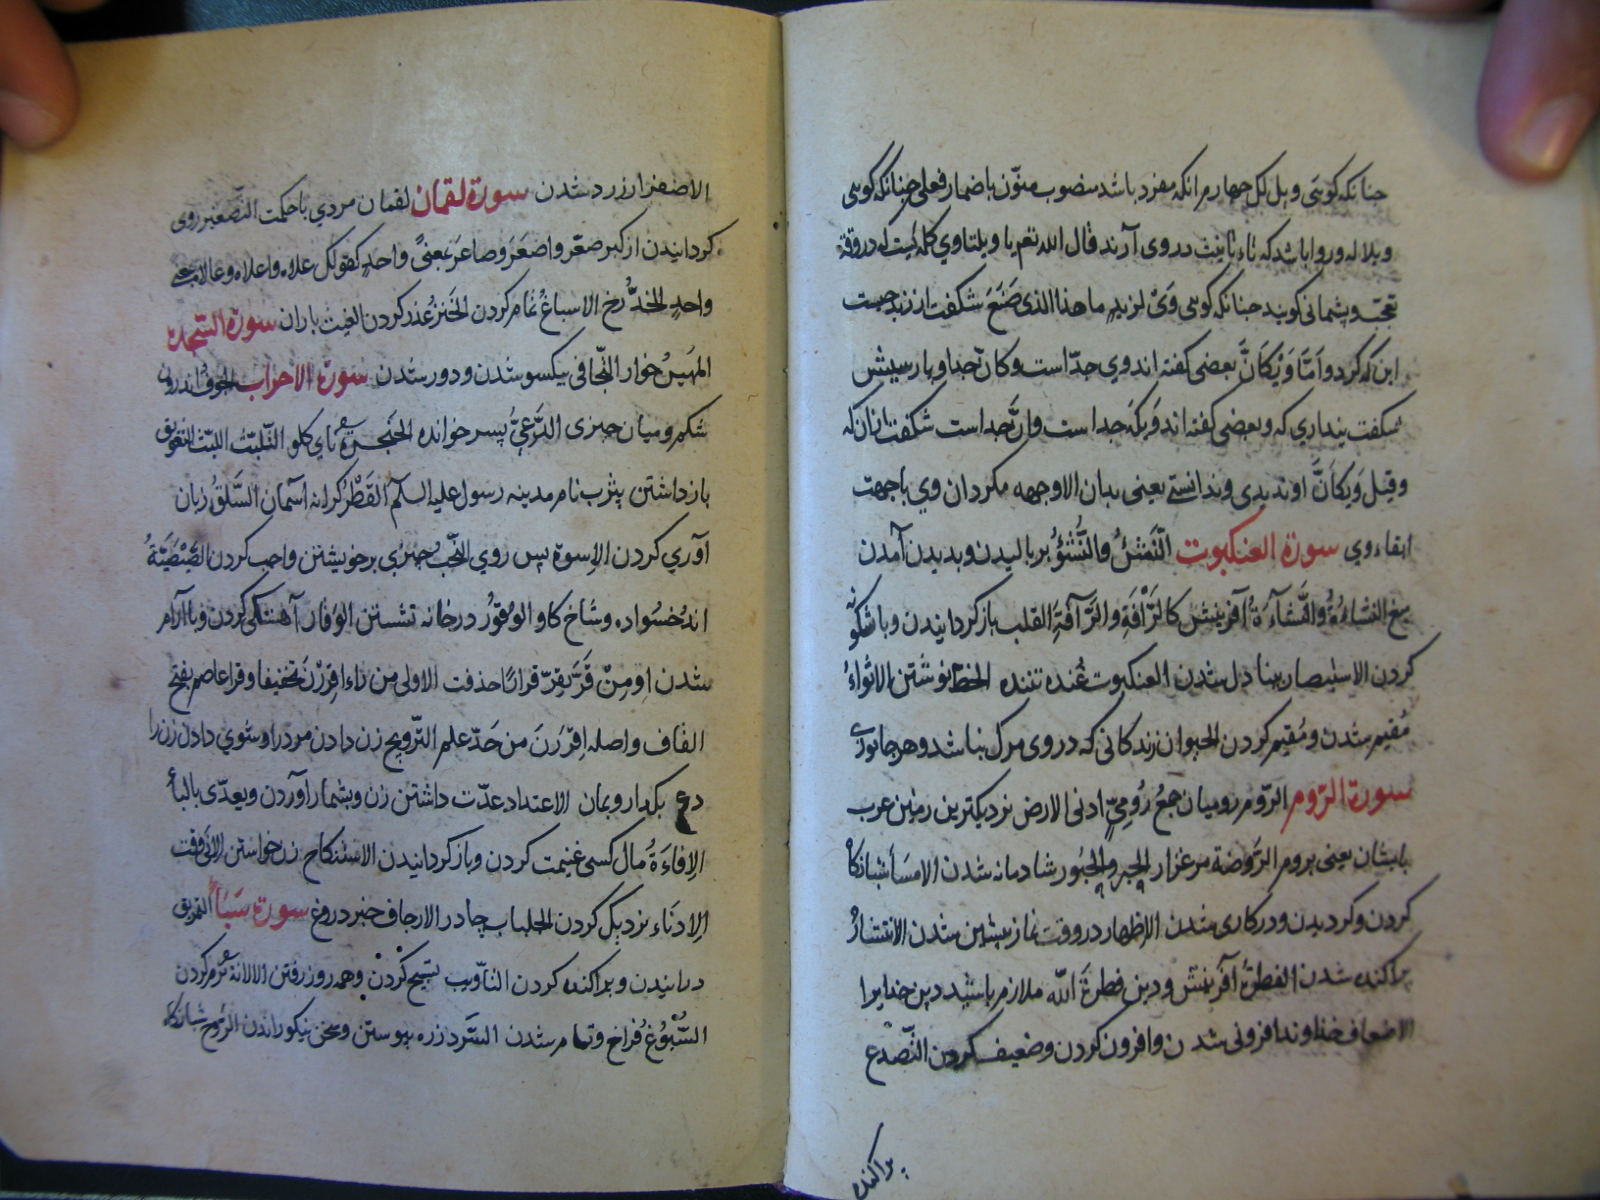 چنانکه کوئی ویل لک چهارم انکه مفرد باشد منصوب منوّن باضمار فعلی چنانکه کوئی
ویلا له وروا باشد که تاء تانیث در وی آرند قال الله تعم یا ویلتا وی کلمه ایست که در وقت
تعجّب و پشمانی کویند چنانکه کوئی وَیْ لزیدٍ ما هذا الذی صَنَعَ شکفت از زید چیست
این که کرد و امّا وَیْکَانَّ بعضی کفته اند وي جدّا است و کانّ جدا و پارسیش
شکفت پنداري که و بعضی کفته اند وَیکَ جدا است و انَّ جدا است شکفت زان که
وقیل وَیکَانَّ او ندیدی و ندانستی یعنی بدان الاوجهه مکردان وي باجهت
ابقاء وي سورة العنکبوت النَّشْئُ والنُّشُؤُ بر بالیدن و بدیدن آمدن
میغ النشاةُ والنَّشآءَةُ آفرینش کالرَّأْفَةِ والرَّآفَةِ القلب باز کردانیدن و باشکونه
کردن الاستبصار بینا دل شدن العنکبوت غُنده تننده الخط نوشتن الاثواءُ
مُقیم شدن و مُقیم کردن الحیوان زندکانی که در وی مرک نباشد و هر جانوری
سورة الرّوم الرّوم رومیان جمعُ رُومیٍّ ادنی الارض نزدیکترین زمین عرب
بایشان یعنی بروم الرَّوضة مرغزار الحبر والحُبُور شادمانه شدن الامسا شبانکاه
کردن و کردیدن و در کاری شدن الاظهار در وقت نماز پیشین شدن الانتشارُ
پراکنده شدن الفطرة آفرینش و دین فطرةَ الله ملازم باشید دین خدایرا
الاضعاف خداوند افزونی شدن و افزون کردن و ضعیف کردن التّصدع
پراکنده
الاصفرار زرد شدن سورة لقمان لقمان مردي با حکمت التّصعیر روی
کردانیدن از کبر صعّر واصعَرَ وصاعَرَ بمعنیً واحدٍ کقولک علاه واعلاه وعالاه بمعنی
واحدٍ الخدُّ رُخ الاسباغُ تمام کردن الخَترُ غدر کردن الغیث باران سورة السّجدة
المَهینُ خوار التّجافی بیکسو شدن و دور شدن سورة الاحزاب الجوفُ اندرون
شکم و میان چیزی الدَّعِيُّ پسر خوانده الحنجرة نای کلو التّلبّث اللبث التعویق
باز داشتن یثرب نام مدینه رسول علیه السلم القُطْرُ کرانه اسمان السَّلقُ زبان
آوري کردن الاِسوة پس روي النَّحْبُ چیزي بر خویشتن واجب کردن الصِّیْصِیَةُ
اندُخسواده و شاخ کاو الوقورُ در خانه نشستن الوَقار آهستکی کردن و با آرام
شدن او مِنْ قَرَّ یقِرّ قرارًا حذفت الاولی من راء اقرِرْنَ تخفیفا وقرا عاصم بفتح
القاف واصله اِقْرَرْنَ من حَدّ علم التّزویج زن دادن مرد را و شوي دادن زن را
دع بکذار و بمان الاعتداد عدّت داشتن زن و بشمار آوردن و یعدّی بالباء
الاِفاءَةُ مال کسی غنیمت کردن و باز کردانیدن الاستنکاح زن خواستن الانی وقت
الاِدنَاء نزدیک کردن الجلباب چادر الارجاف خبر دروغ سورة سَبَأ التمزیق
درانیدن و پراکنده کردن التّأویب تسبیح کردن و همه روز رفتن الالانة نرم کردن
السُّبُوغُ فُراخ و تمام شدن السَّرد زره پیوستن و سخن نیکو راندن الرَّوح شبانکاه